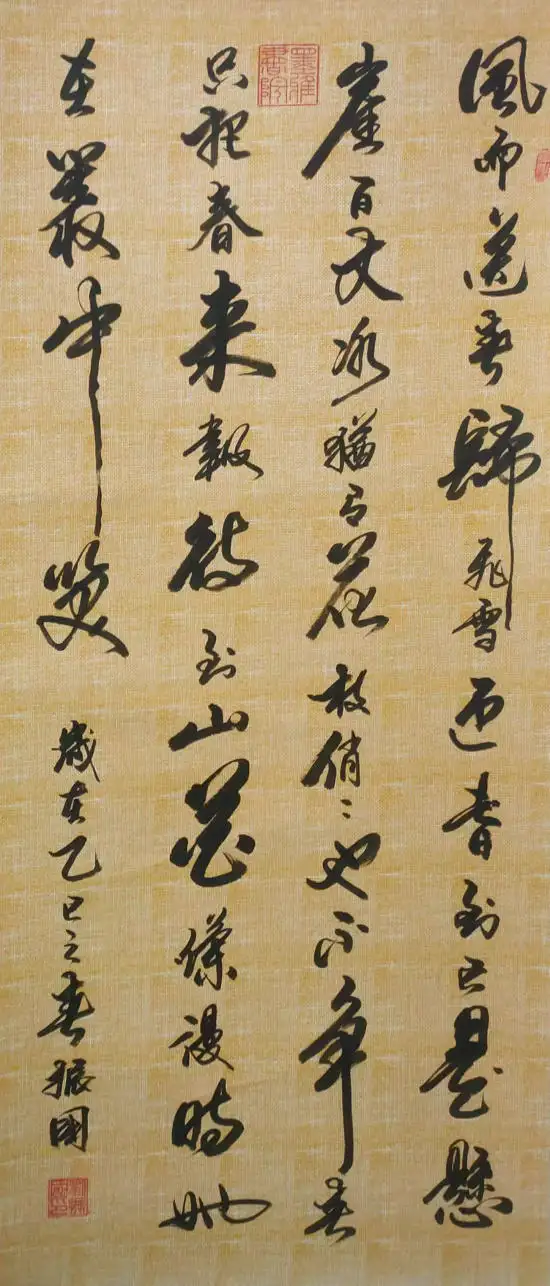 風雨送春歸飛雪迎春到已是懸
崖百丈冰猶有花枝俏〻也不爭春
只把春来報待到山花爛漫時她
在叢中笑
歲在乙巳之春振國